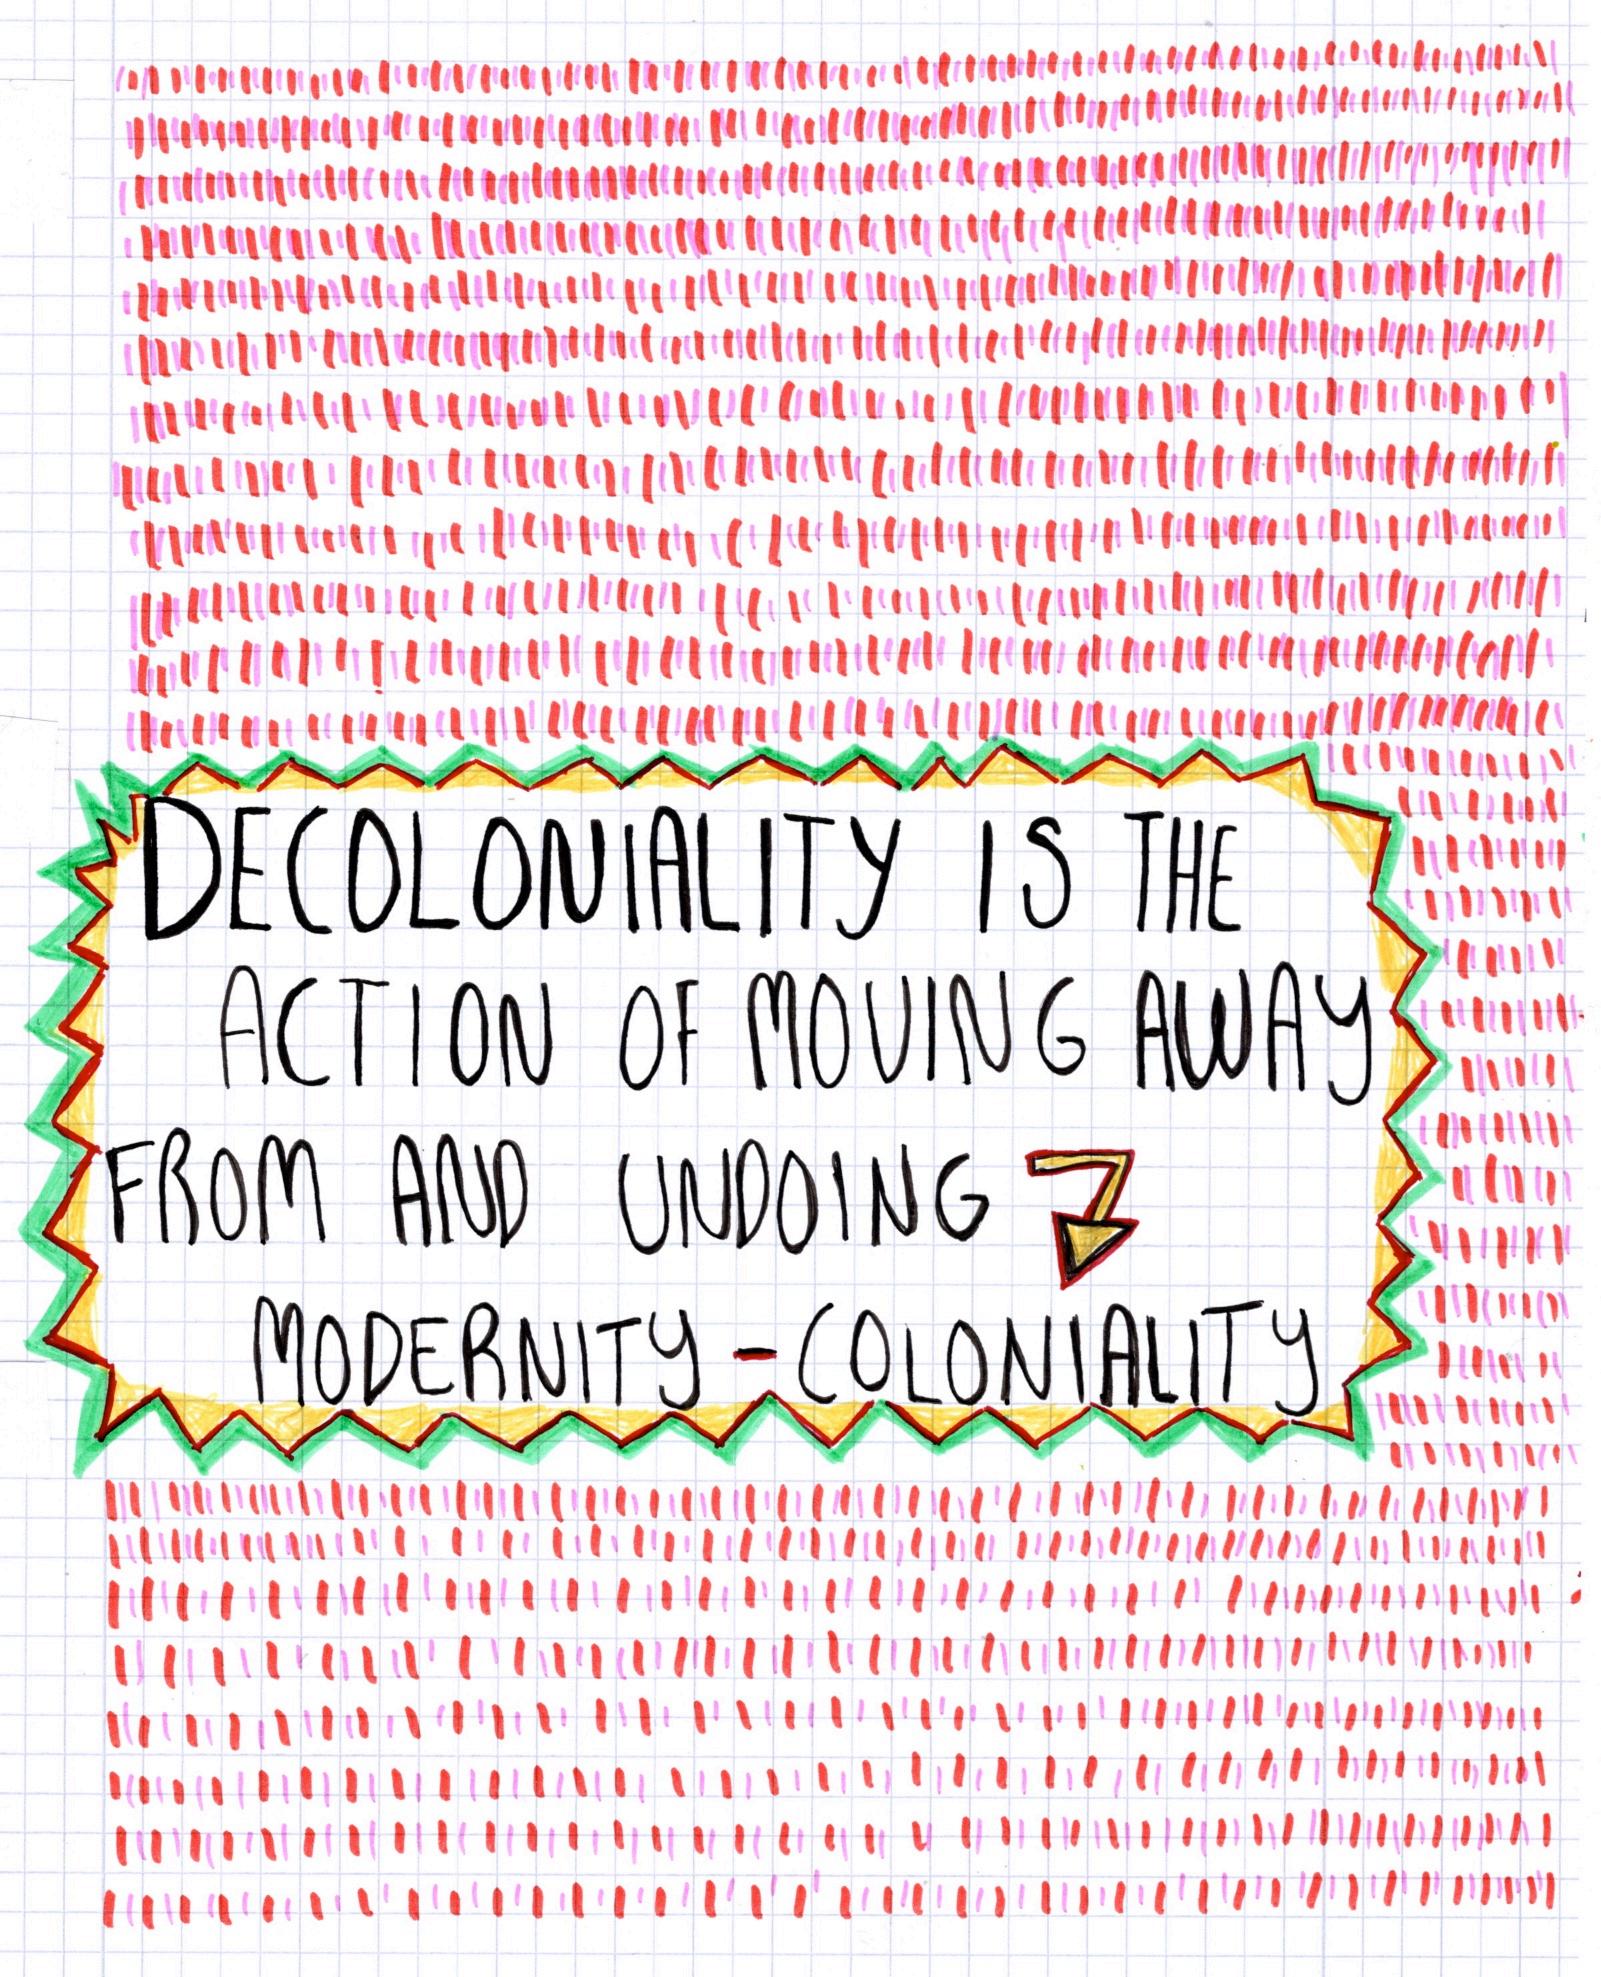 DECOLONIALITY IS THE
ACTION OF MOVING AWAY
FROM AND UNDOING
MODERNITY-COLONIALITY